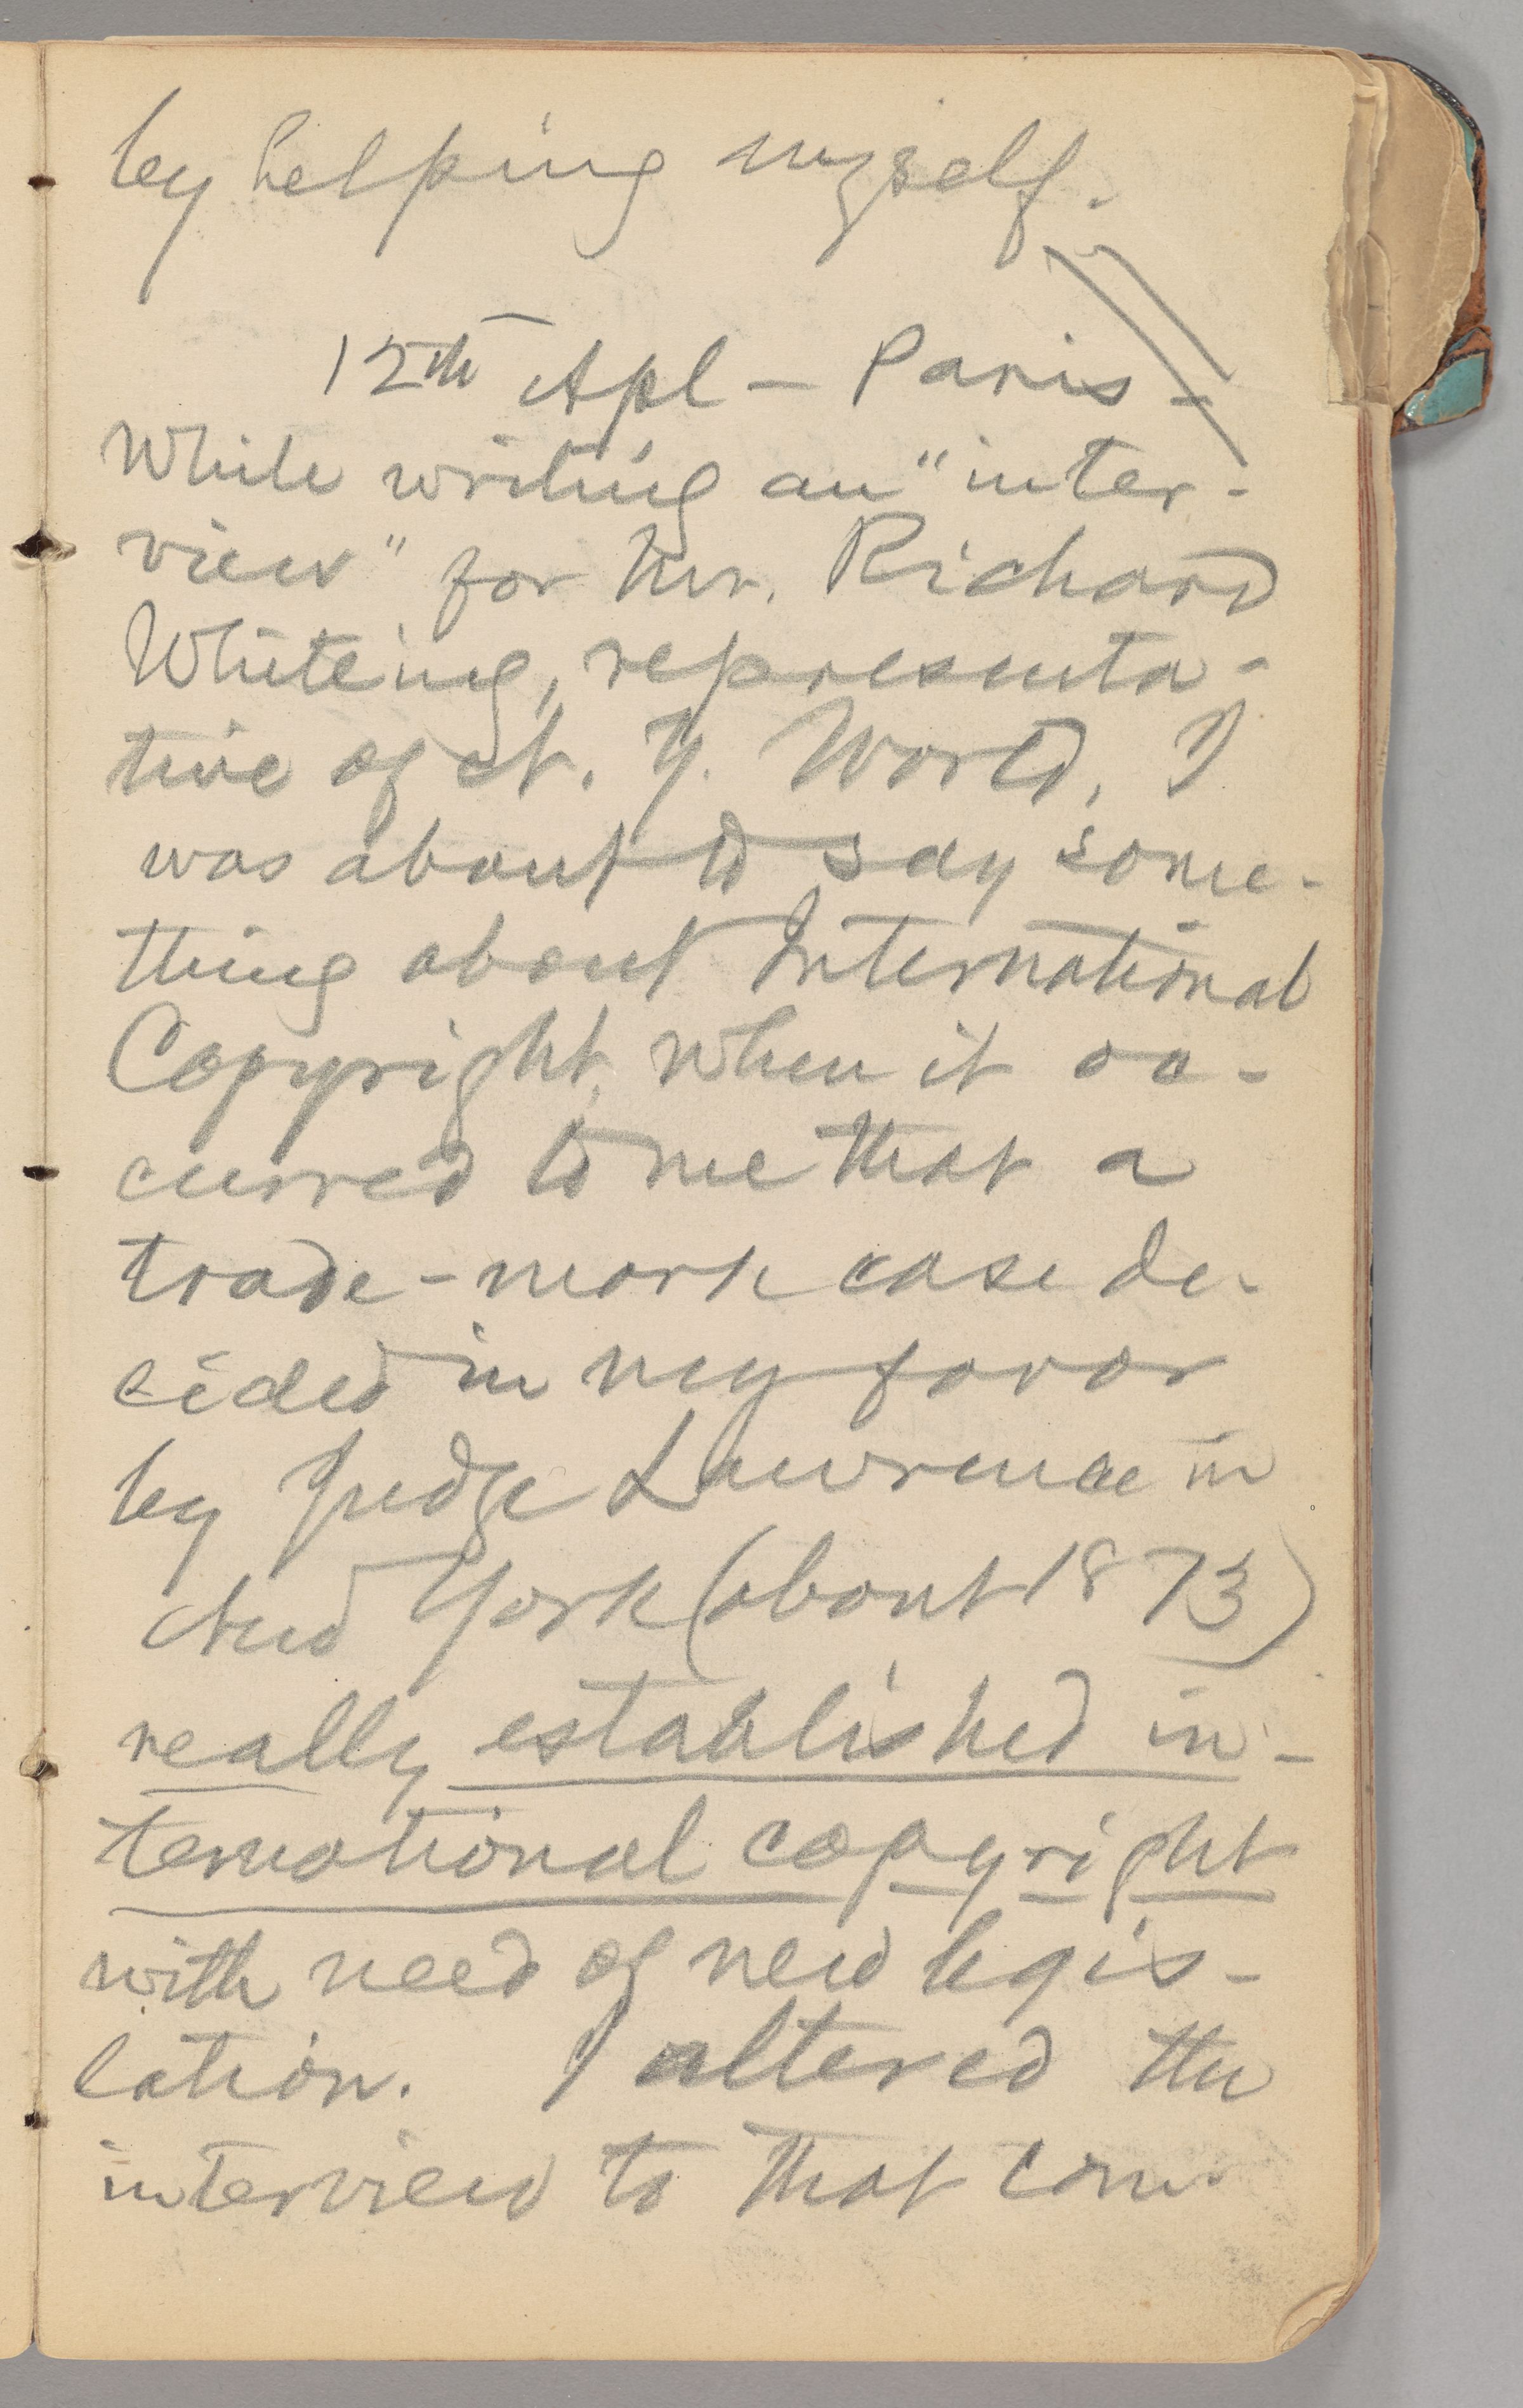 by helping myself.
12th Apl — Paris —
While writing an "inter-
view" for Mr. Richard
Whiteing, representa-
tive of N. Y. World, I
was about to say some-
thing about International
Copyright, when it oc-
curred to me that a
trade-mark case de-
cided in my favor
by Judge Lawrence in
New York (about 1873)
really established in-
ternational copyright
with need of new legis-
lation. I altered the
interview to that com-